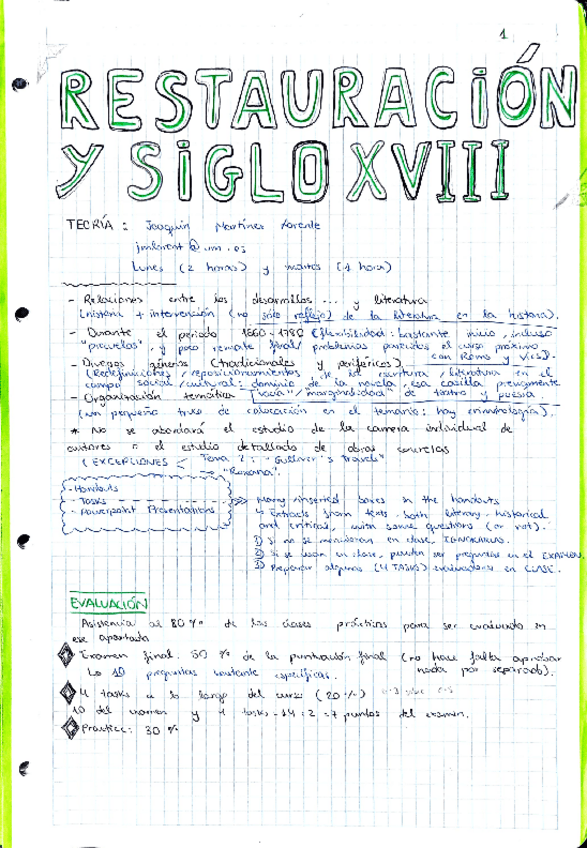 1
RESTAURACIÓN
Y SIGLO XVIII
TEORÍA : Joaquín Martínez Lorente
jmlorent@um.es
Lunes (2 horas) y martes (1 hora)
- Relaciones entre los desarrollos ... y literatura
(historia + intervención (no sólo reflejo) de la literatura en la historia).
- Durante el periodo 1660-1780 (flexibilidad: bastante inicio, incluso
"precuelas", y poco remate final / problemas parecidos el curso próximo
con Roms y Vics).
- Diversos géneros (tradicionales y periféricos)
(Redefiniciones / reposicionamientos de la escritura / literatura en el
campo social / cultural: dominio de la novela, esa casilla previamente
- Organización temática "vacía" / "marginalidad" de teatro y poesía.
(un pequeño truco de colocación en el temario: hay cronología).
* No se abordará el estudio de la carrera individual de
autores o el estudio detallado de obras concretas
(EXCEPCIONES Tema 2: - "Gulliver's Travels"
- "Roxana".
- Handouts
- Tasks
- Powerpoint Presentations
Many numerical boxes in the handouts
↳ Extracts from texts - both literary-historical
and critical, with some questions (or not).
1) Si no se mencionan en clase, IGNORARLOS.
2) Si se usan en clase, pueden ser preguntas en el EXAMEN.
3) Preparar algunos (4 TASKS) evaluadas en CLASE.
EVALUACIÓN
Asistencia al 80% de las clases prácticas para ser evaluado en
ese apartado
Examen final: 50% de la puntuación final (no hace falta aprobar
nada por separado).
↳ 10 preguntas bastante específicas.
4 tasks a lo largo del curso (20%)
10 del examen y 4 tasks = 14 : 2 = 7 puntos del examen.
Practice: 30%